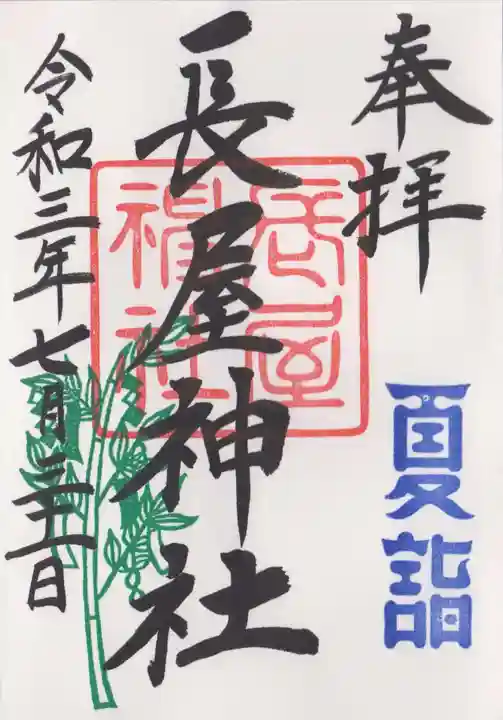 奉拝
夏詣
長屋神社
長屋
神社
令和三年七月三十一日